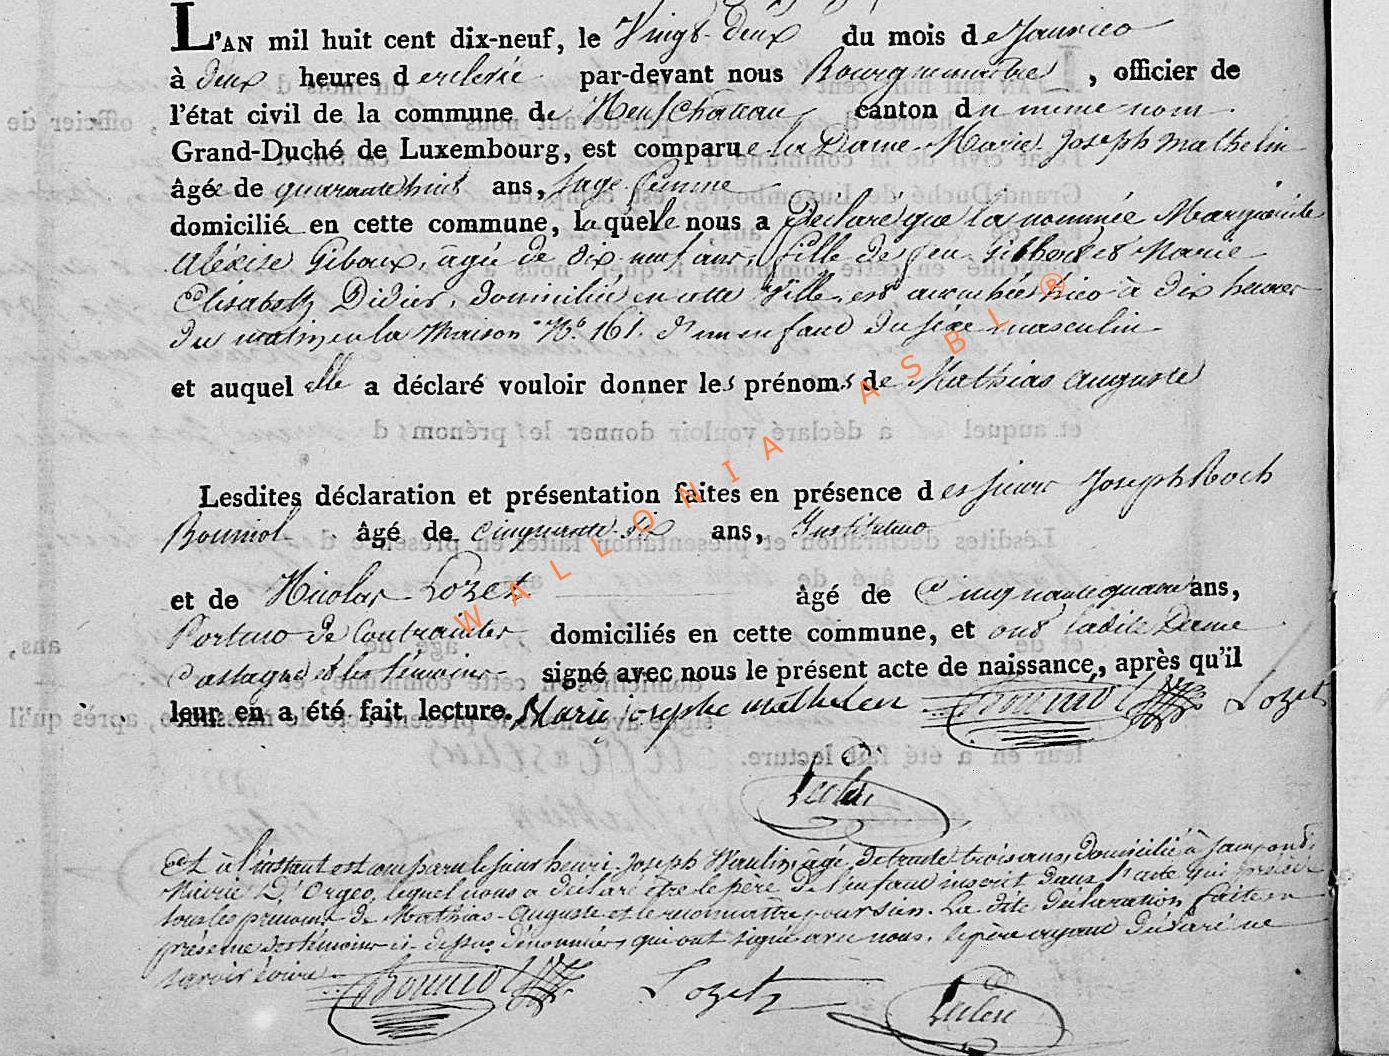 L'AN mil huit cent dix-neuf, le Vingt-deux du mois de Janvier
à deux heures de relevée par-devant nous Bourgmestre, officier de
l'état civil de la commune de Neufchateau canton du même nom
Grand-Duché de Luxembourg, est comparue la Dame Marie Joseph Mathelin
âgée de quarante huit ans, Sage femme
domiciliée en cette commune, laquelle nous a Déclaré que la nommée Marguerite
Alexise Giboux, agée de dix neuf ans, fille de feu et Marie
Elisabeth Didier, domiciliée en cette Ville, est accouchée hier à dix heures
du matin en la Maison No. 161. d'un enfant du sexe masculin
et auquel elle a déclaré vouloir donner les prénoms de Mathias Auguste
Lesdites déclaration et présentation faites en présence des sieurs Joseph Roch
Bouniol âgé de cinquante six ans, Instituteur
et de Nicolas Lozet âgé de Cinquante quatre ans,
Porteur de Contraintes domiciliés en cette commune, et ont ladite Dame
et les témoins signé avec nous le présent acte de naissance, après qu'il
leur en a été fait lecture. Marie josephe mathelin Bouniol Lozet
Et à l'instant est comparu le sieur henri Joseph Waulin, âgé de trente trois ans, domicilié à
Mairie D'Orgeo, lequel nous a déclaré être le père de l'enfant inscrit dans l'acte qui précède
sous les prénoms de Mathias-Auguste et le reconnaître pour sien. La dite déclaration faite en
présence des témoins ci-dessus dénommés, qui ont signé avec nous, le père ayant déclaré ne
savoir écrire
Bouniol Lozet
WALLONIA ASBL ®